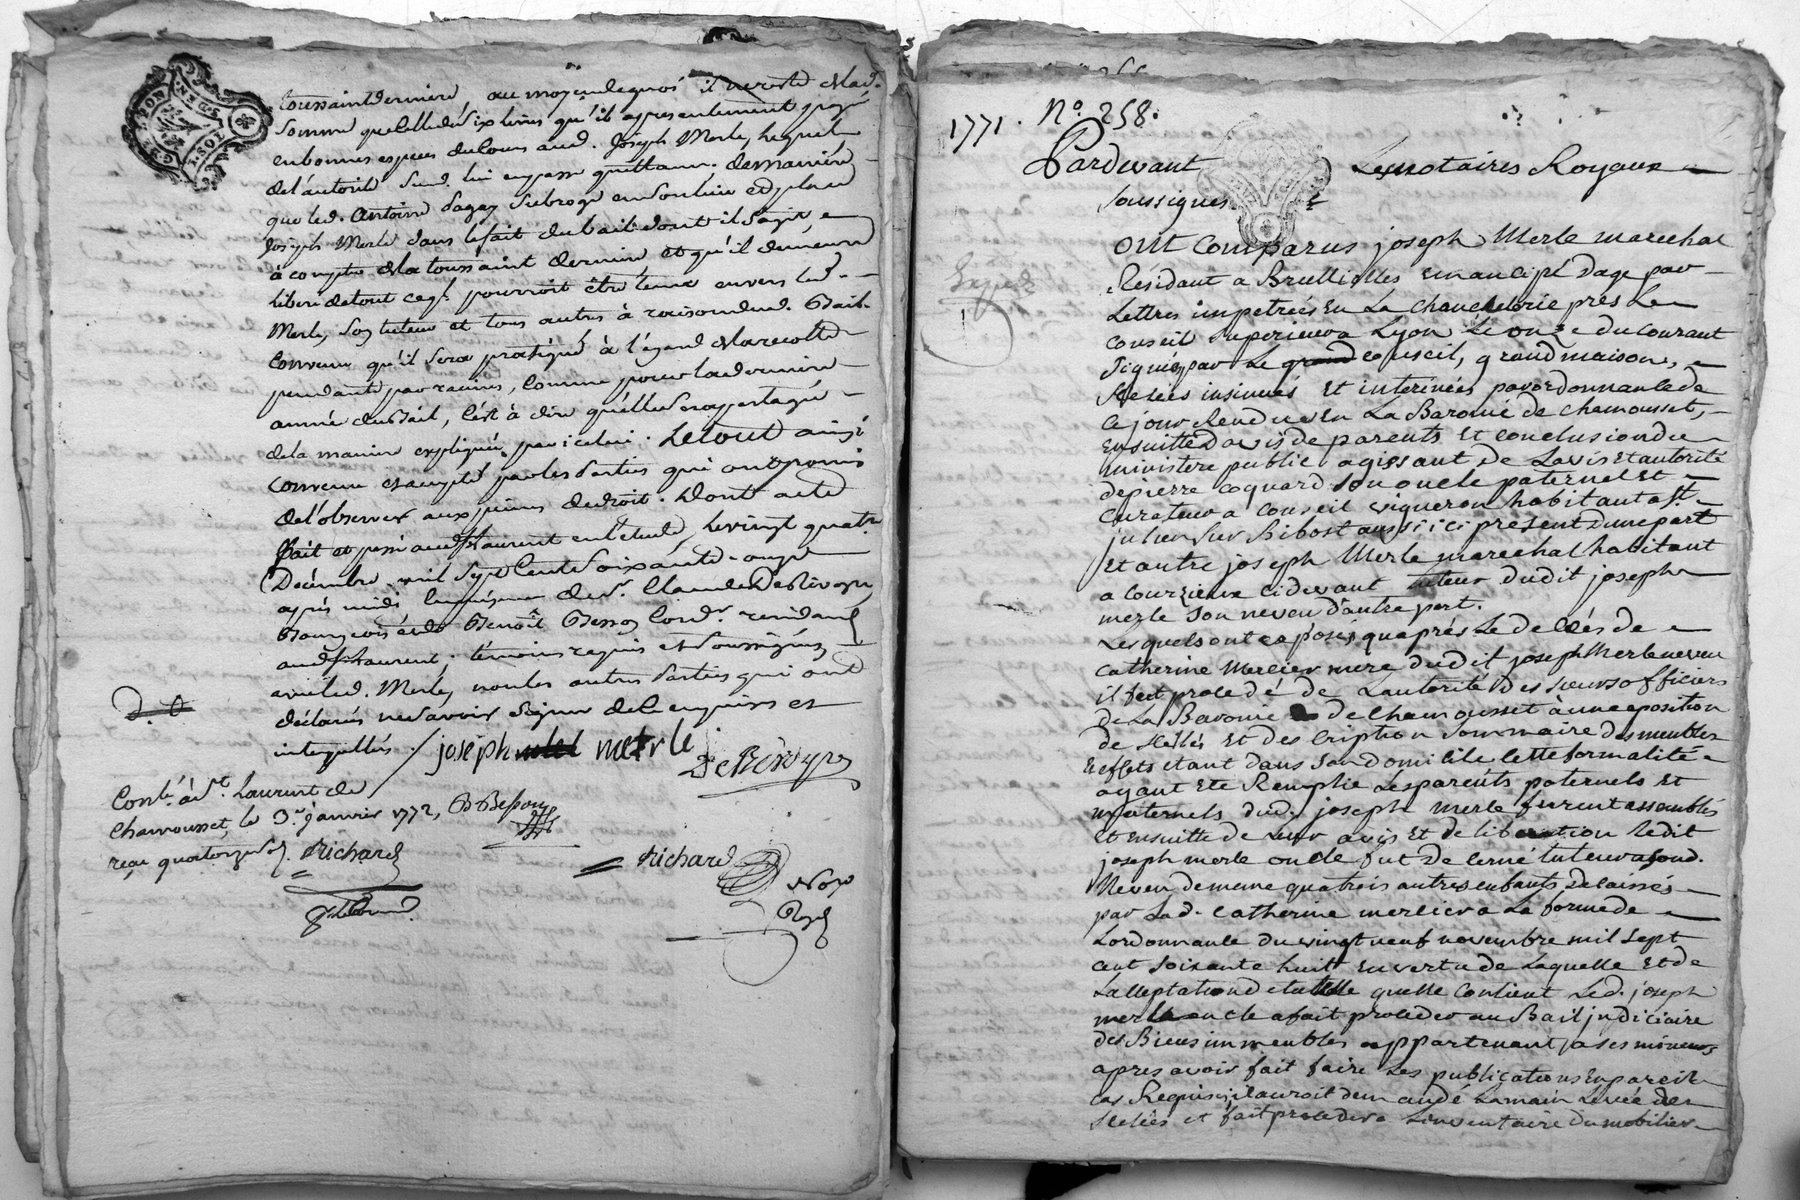 toussaint derniere au moyen de quoi il ne reste de lad.
somme que celle de six livres qu'il a presentement payé
en bonnes especes de cours aud. Joseph Merle, lequel
de l'autorité susd. lui en passe quittance. de maniére
que led. Antoine subrogé en son lieu et place
Joseph Merle dans le fait du bail dont il s'agit,
à compter de la toussaint derniere et qu'il demeure
liberé de tout ce qu'il pourroit être tenu envers led.
Merle, son tuteur et tous autres à raison dud. Bail.
Convenu qu'il sera pratiqué à l'égard de la recolte
pendante par racines, comme pour la derniere
année du Bail, c'est à dire qu'elle sera partagée
de la maniere expliquée par icelui. Le tout ainsi
convenu et accepté par les parties qui ont promis
de l'observer aux peines de droit. Dont acte
fait et passé aud. St Laurent en l'étude, le vingt quatre
Décembre mil sept cent soixante-onze
après midi, en présence de sr. Claude DeRivoyre,
Bourgeois et de Benoît Besson cord.r residants
aud. St Laurent, témoins requis et soussignés
avec led. Merle, non les autres parties qui ont
déclaré ne savoir signer de ce enquises et
interpellées. / joseph merle
DeRivoyre
Contr. à St. Laurent de
Chamousset, le 3.e janvier 1772, B Besson
reçu quatorze sols. Richard
Richard
Not.
Royal
1771. No. 258.
Pardevant Les notaires Royaux
soussignés
Ont comparus joseph Merle marechal
Residant a Brullioles emancipé dage par
Lettres impetrées en La chancelerie pres Le
conseil superieur a Lyon le onze du courant
signées par Le conseil, grandmaison,
scelées insinués et interinées par ordonnance de
ce jour Rendue en La Baronie de chamousset,
ensuitte d'avis de parents et conclusion du
ministere public, agissant de Lavis et autorité
de pierre coquard son oncle paternel et
curateur a conseil vigneron habitant a St.
julien sur Bibost aussi ici present d'une part
et autre joseph Merle marechal habitant
a courzieux cidevant tuteur dudit joseph
merle son neveu d'autre part.
Lesquels ont exposés, qu'aprés Le decés de
Catherine Mercier mere dudit joseph Merle neveu
il fut procedé de Lautorité des sieurs officiers
de La Baronie de chamousset à une aposition
de scellés et description sommaire des meubles
et effets etant dans son domicile cette formalité
ayant eté Remplie Les parents paternels et
maternels dud. joseph merle furent assemblés
et ensuitte de Leur avis et deliberation Ledit
joseph merle oncle fut decerné tuteur a sond.
Neveu de meme qua trois autres enfants delaissés
par Lad. Catherine mercier a La forme de
Lordonnance du vingt neuf novembre mil sept
cent soixante huit en vertu de Laquelle et de
Lacceptation de tutelle quelle contient Led. joseph
merle oncle a fait proceder au Bail judiciaire
des Biens immeubles appartenant a ses mineurs
apres avoir fait faire Les publications en pareil
cas Requises, il auroit demandé La main Levée des
scelés et fait proceder a Linventaire du mobilier